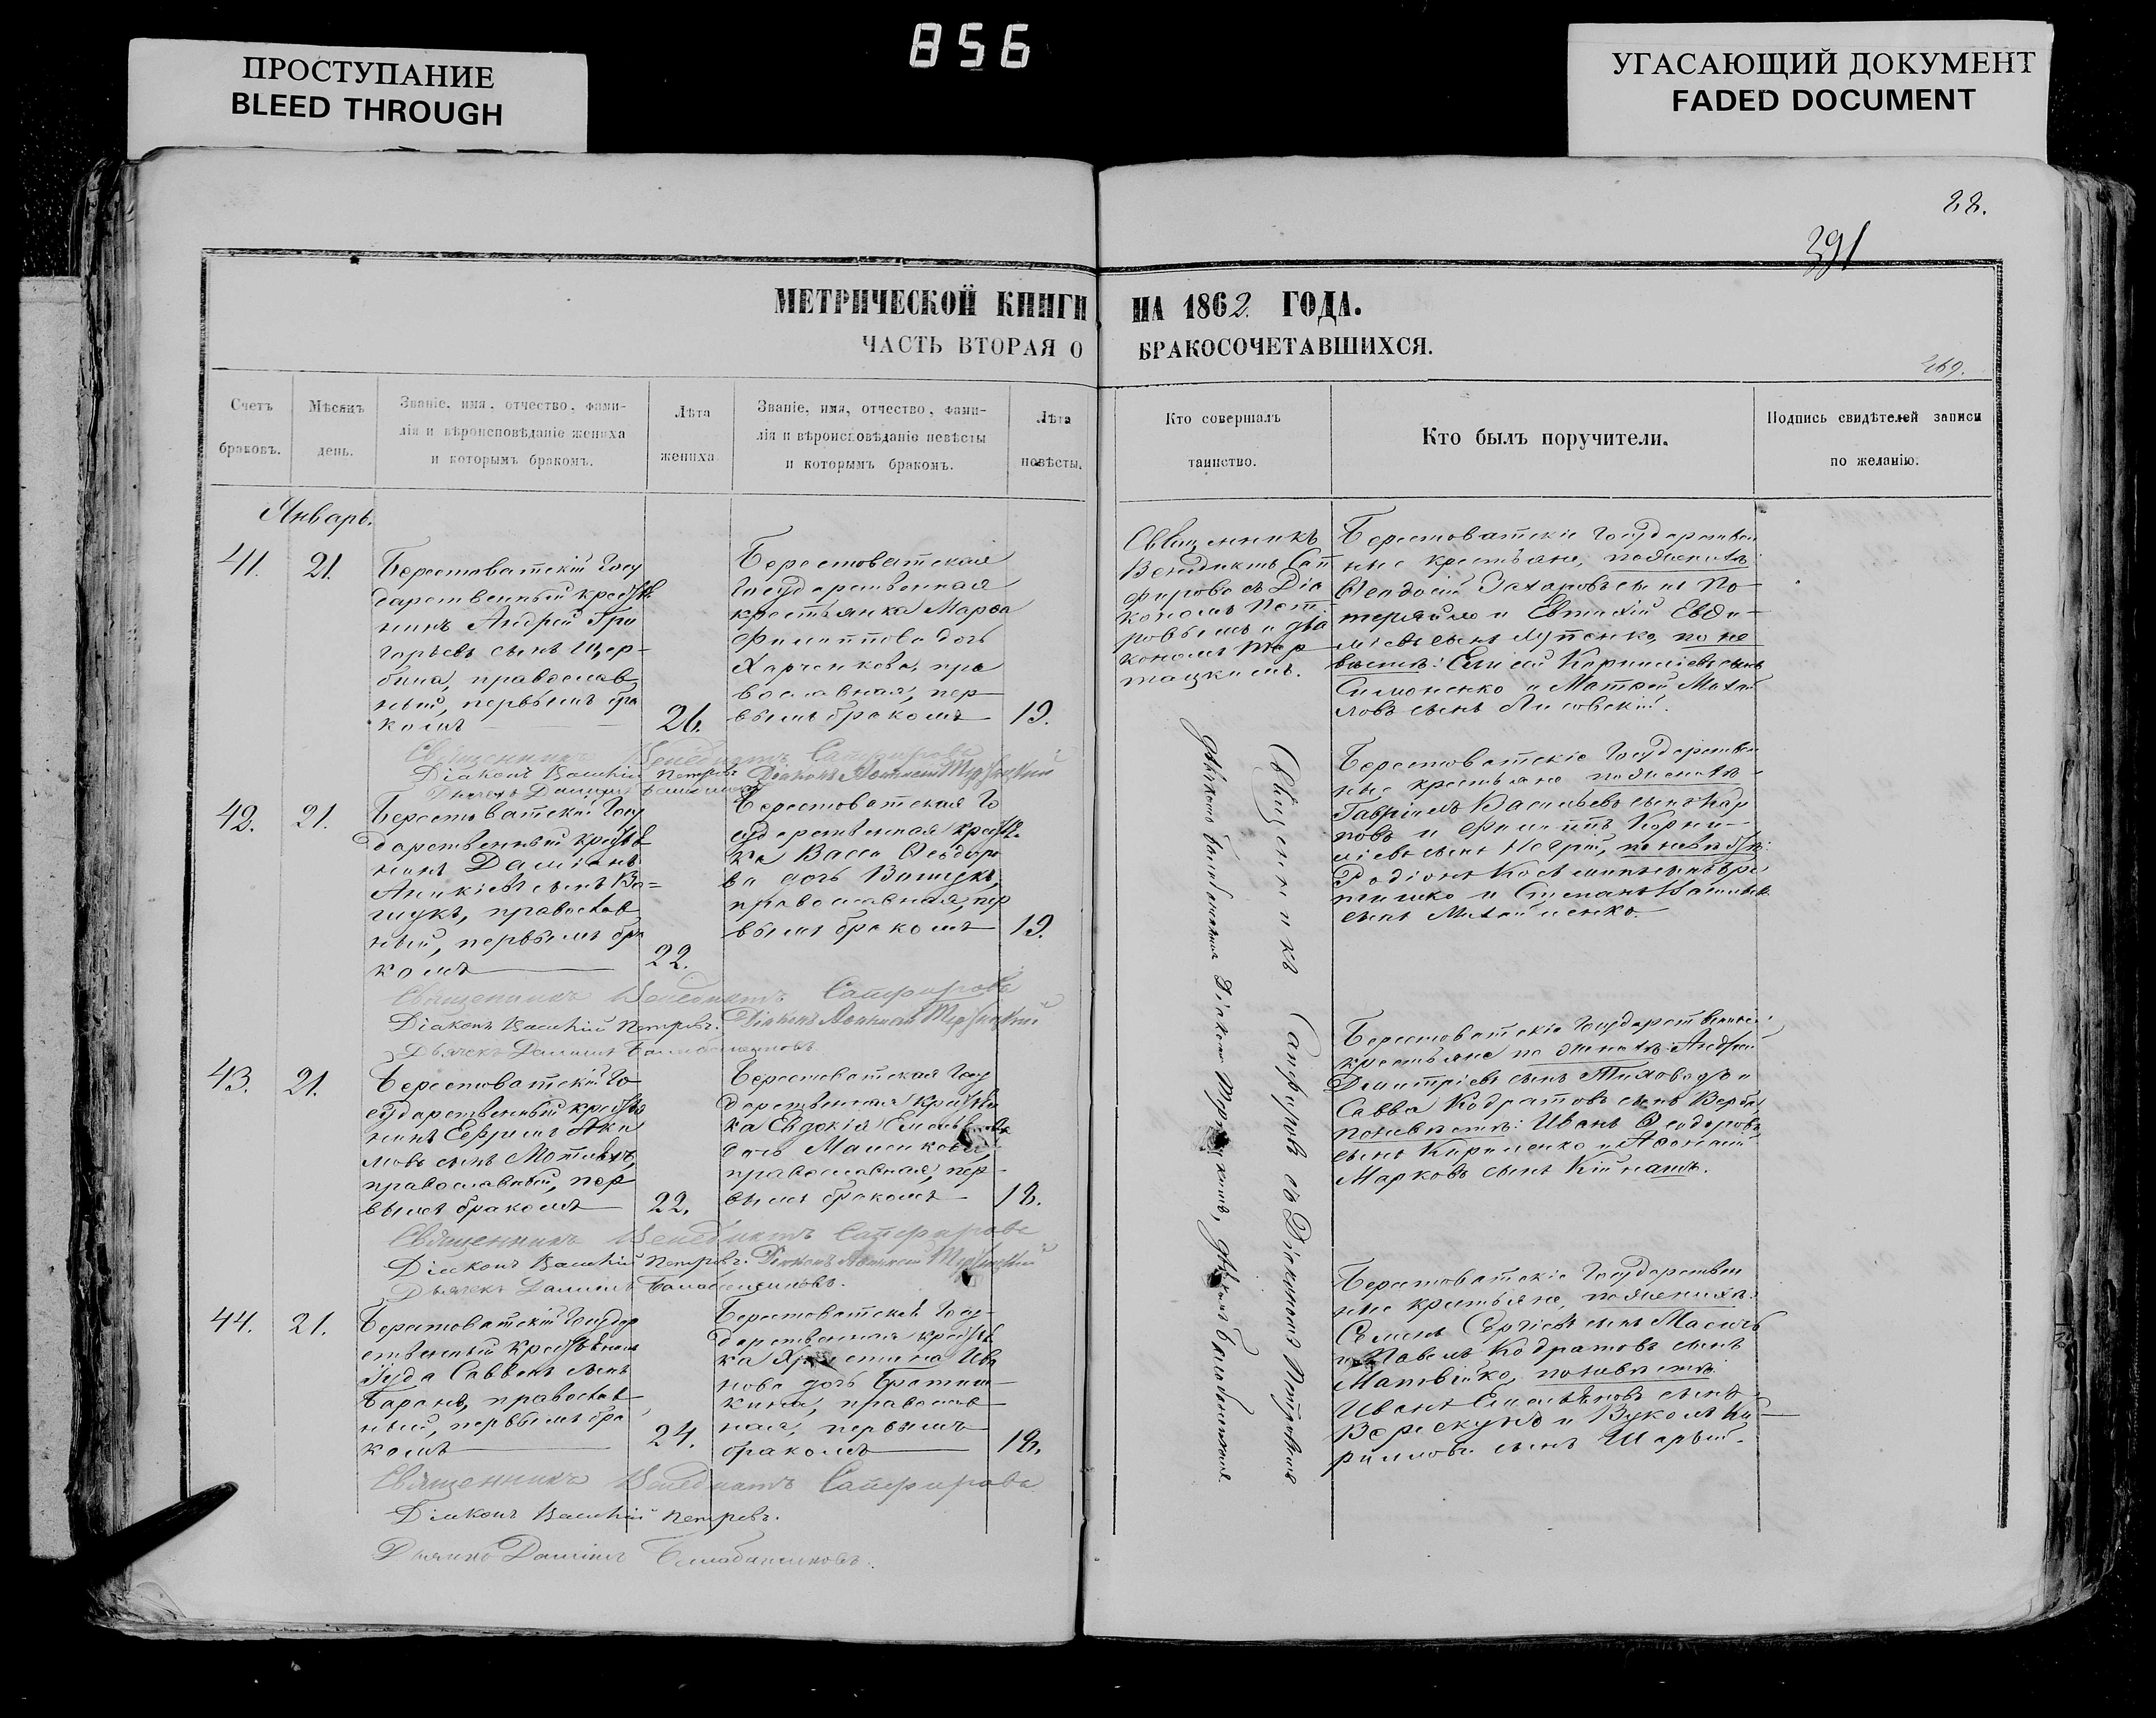 856
ПРОСТУПАНИЕ
BLEED THROUGH
УГАСАЮЩИЙ ДОКУМЕНТ
FADED DOCUMENT
22.
391
МЕТРИЧЕСКОЙ КНИГИ НА 1862. ГОДА.
ЧАСТЬ ВТОРАЯ О БРАКОСОЧЕТАВШИХСЯ.
269.
Счетъ
браковъ.
Мѣсяцъ
день.
Званіе, имя, отчество, фами-
лія и вѣроисповѣданіе жениха
и которымъ бракомъ.
Лѣта
жениха
Званіе, имя, отчество, фами-
лія и вѣроисповѣданіе невѣсты
и которымъ бракомъ.
Лѣта
невѣсты.
Кто совершалъ
таинство.
Кто былъ поручители.
Подпись свидѣтелей записи
по желанію.
Январь.
41.
21.
Берестоватскій Госу
дарственный крестья
нинъ Андрей Гри
горьевъ сынъ Щер-
бина, православ
ный, первымъ бра
комъ
26.
Берестоватская
Государственная
крестьянка Марѳа
Филиппова дочь
Харченкова, пра
вославная, пер
вымъ бракомъ
19.
Священникъ
Венедиктъ Сап
фировъ съ Діа
кономъ Пет
ровымъ и діа
кономъ
Берестоватскіе Государствен
ные крестьяне, по женихѣ:
Ѳеодосій Захаровъ сынъ По
теряйло и Евтихій Евѳи-
міевъ сынъ Лупенко, по не
вѣстѣ: Елисей Корниліевъ сынъ
Симоненко и Матѳей Михай
ловъ сынъ Лисовскій.
Священникъ Венедиктъ Сапфировъ
Діаконъ Василій Петровъ. Діаконъ
Дьячекъ Даніилъ
42.
21.
Берестоватскій Госу
дарственный крестья
нинъ Даміанъ
Аникіевъ сынъ Ва=
щукъ, православ
ный, первымъ бра
комъ
22.
Берестоватская Го
сударственная крестьян
ка Васса Ѳеодоро
ва дочь
православная, пер
вымъ бракомъ
19.
Берестоватскіе Государствен
ные крестьяне по женихѣ
Гавріилъ Васильевъ сынъ Кар
повъ и Филиппъ Корни-
ліевъ сынъ Негрій, по невѣстѣ:
Родіонъ
и Стефанъ Васильевъ
сынъ Михайленко.
Священникъ Венедиктъ Сапфировъ
Діаконъ Василій Петровъ. Діаконъ
Дьячекъ Даніилъ
43.
21.
Берестоватскій Го
сударственный крестья
нинъ Ефремъ Аки
мовъ сынъ
православный, пер
вымъ бракомъ
22.
Берестоватская Госу
дарственная крестьян
ка Евдокія
дочь
православная, пер-
вымъ бракомъ
18.
Берестоватскіе Государственные
крестьяне по женихѣ: Андрей
Димитріевъ сынъ Тиховодъ и
Савва Кодратовъ сынъ Верба,
по невѣстѣ: Иванъ Ѳеодоровъ
сынъ Кириленко и Аѳонасій
Марковъ сынъ
Священникъ Венедиктъ Сапфировъ
Діаконъ Василій Петровъ. Діаконъ
Дьячекъ Даніилъ
44.
21.
Берестоватскій Государ
ственный крестьянинъ
Іуда Саввинъ сынъ
Баранъ, православ
ный, первымъ бра
комъ
24.
Берестоватская Госу-
дарственная крестьян
ка Христина Ива
нова дочь
православ
ная, первымъ
бракомъ
18.
Берестоватскіе Государствен
ные крестьяне, по женихѣ:
Семенъ Сергіевъ сынъ
и Павелъ Кодратовъ сынъ
Матвійко, по невѣстѣ
Иванъ Емельяновъ сынъ
Верескунъ и Вуколъ Ки-
рилловъ сынъ
Священникъ Венедиктъ Сапфировъ
Діаконъ Василій Петровъ.
Даніилъ
Священникъ Сапфировъ съ Діакономъ Петровымъ